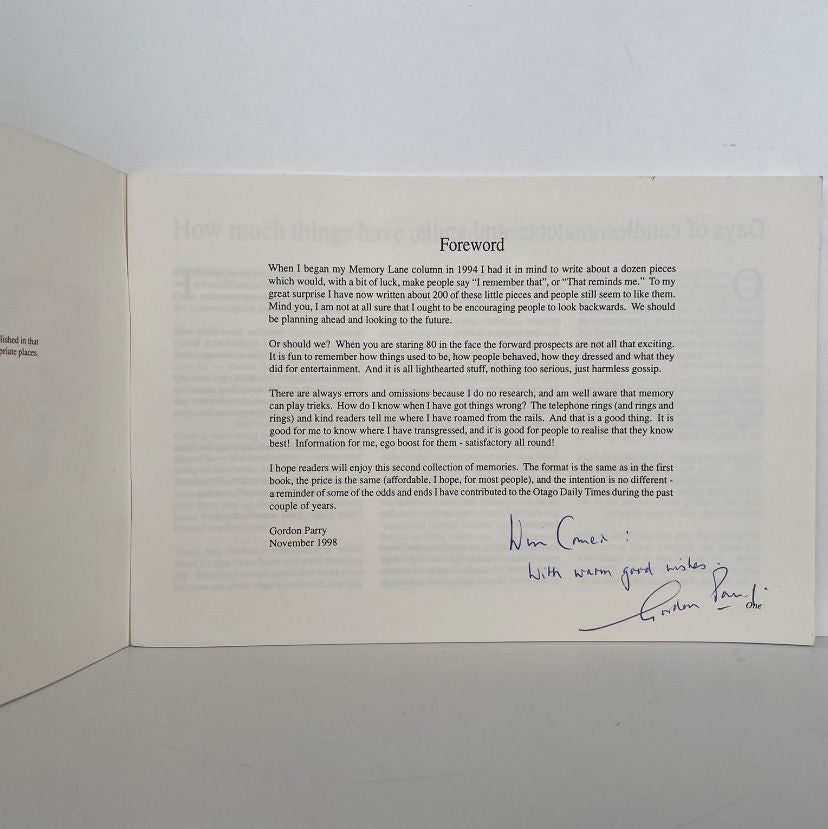 lished in that
priate places.
How much things have
Days of candles,
Foreword
When I began my Memory Lane column in 1994 I had it in mind to write about a dozen pieces
which would, with a bit of luck, make people say "I remember that", or "That reminds me." To my
great surprise I have now written about 200 of these little pieces and people still seem to like them.
Mind you, I am not at all sure that I ought to be encouraging people to look backwards. We should
be planning ahead and looking to the future.
Or should we? When you are staring 80 in the face the forward prospects are not all that exciting.
It is fun to remember how things used to be, how people behaved, how they dressed and what they
did for entertainment. And it is all lighthearted stuff, nothing too serious, just harmless gossip.
There are always errors and omissions because I do no research, and am well aware that memory
can play tricks. How do I know when I have got things wrong? The telephone rings (and rings and
rings) and kind readers tell me where I have roamed from the rails. And that is a good thing. It is
good for me to know where I have transgressed, and it is good for people to realise that they know
best! Information for me, ego boost for them - satisfactory all round!
I hope readers will enjoy this second collection of memories. The format is the same as in the first
book, the price is the same (affordable, I hope, for most people), and the intention is no different -
a reminder of some of the odds and ends I have contributed to the Otago Daily Times during the past
couple of years.
Gordon Parry
November 1998
With warm good wishes.
Gordon Parry
One